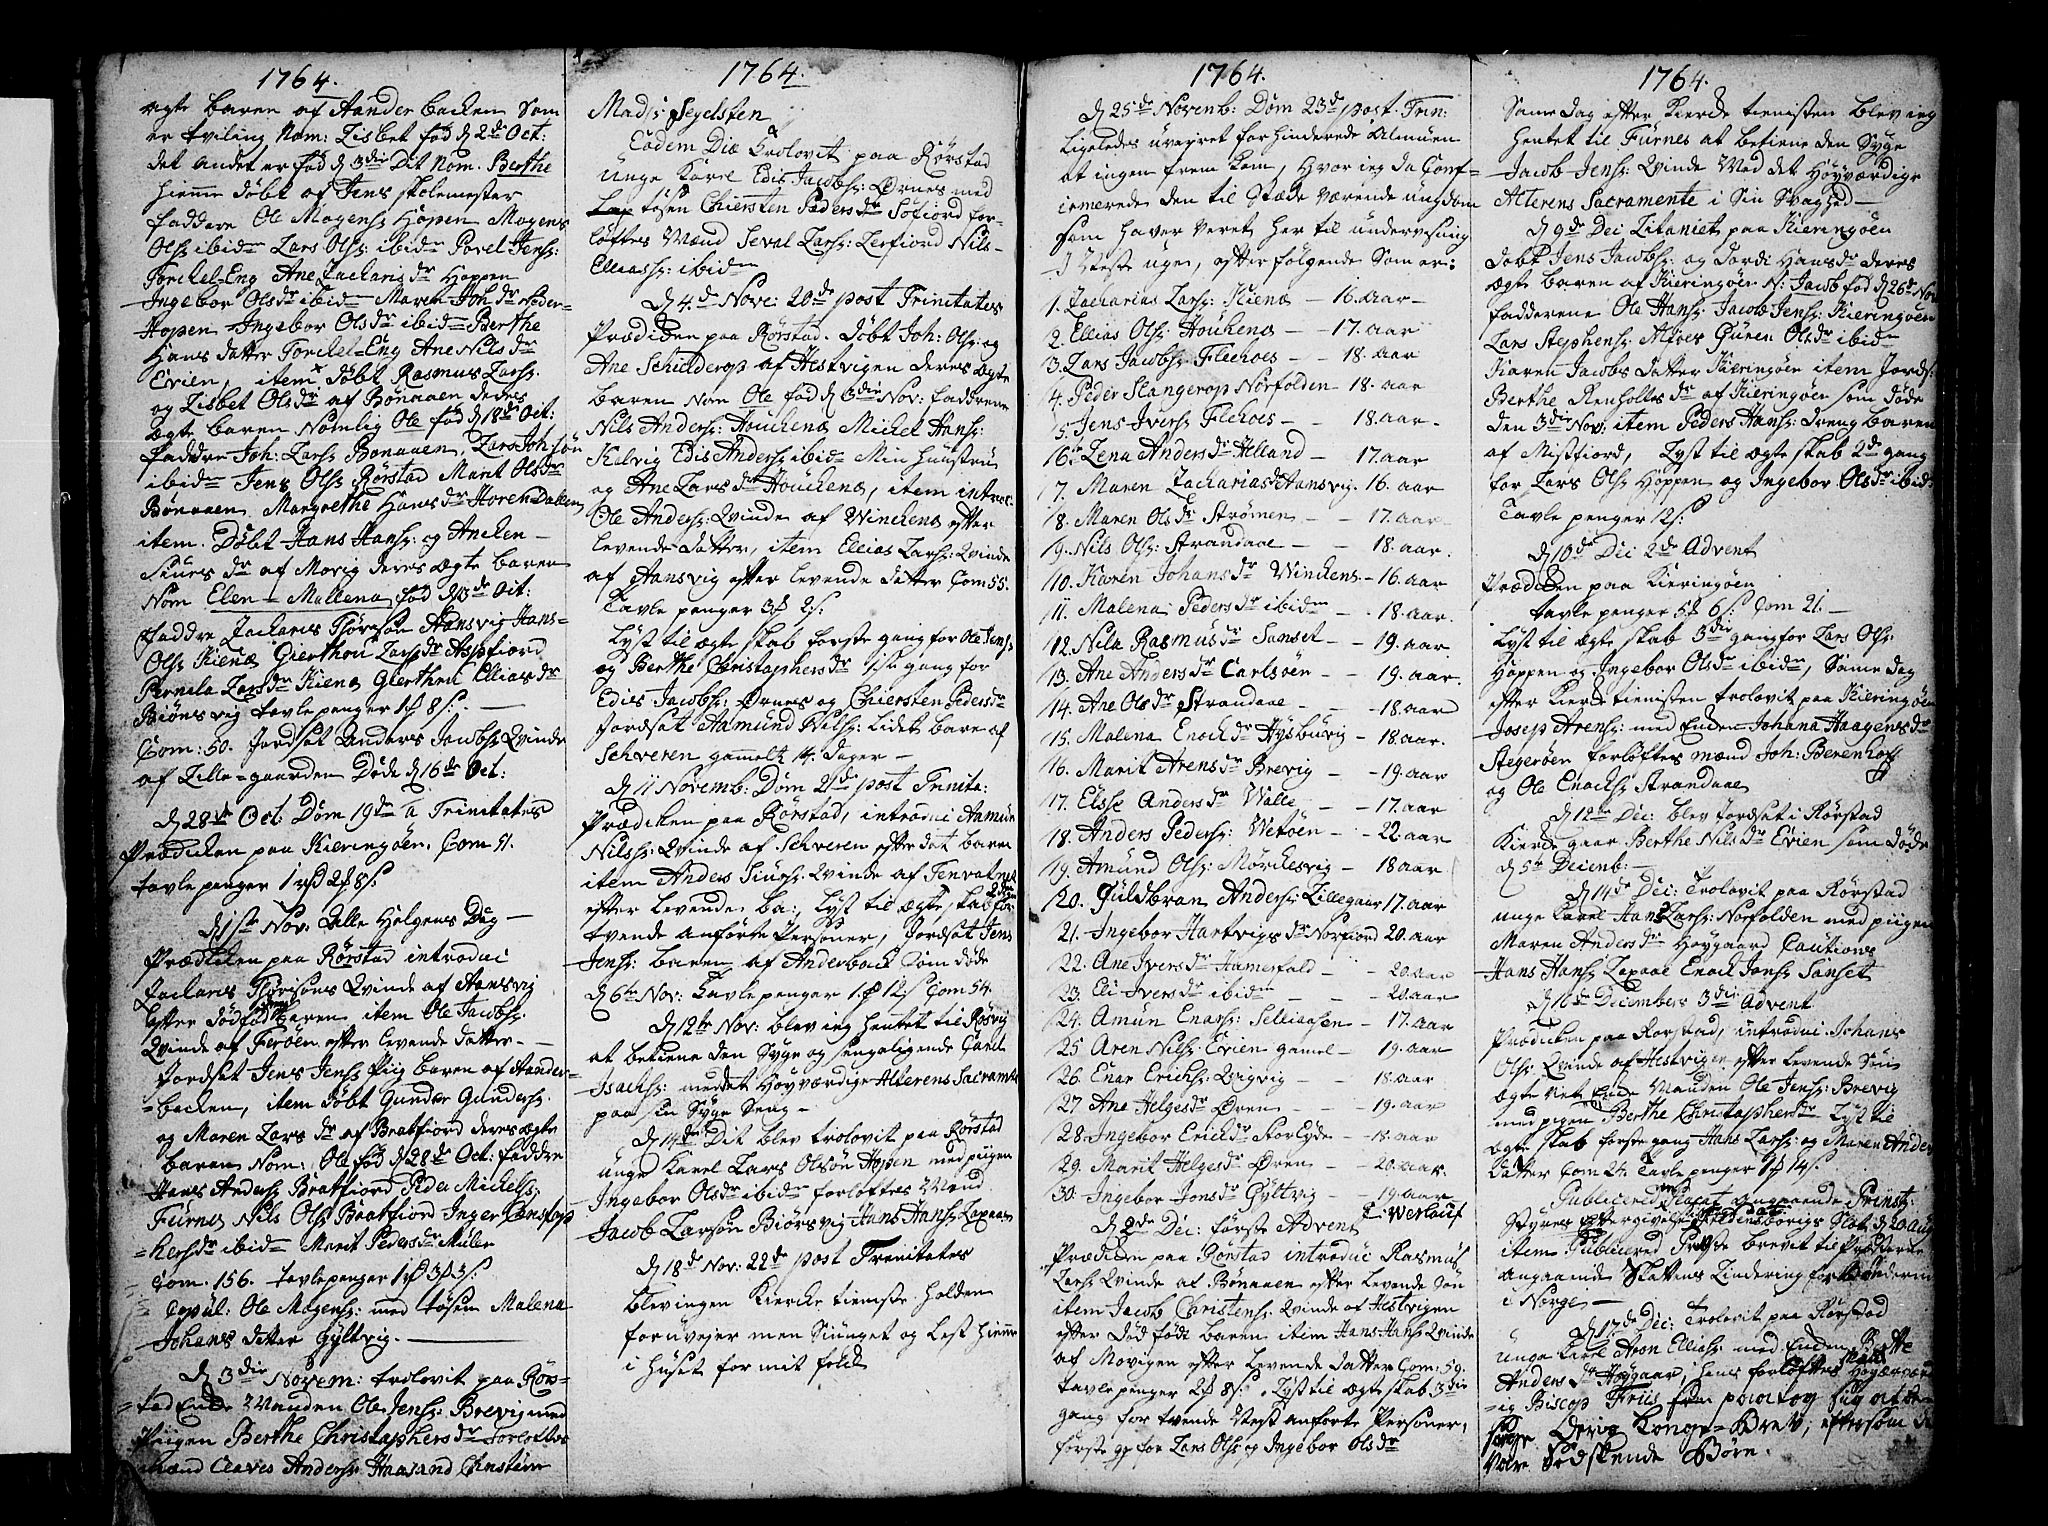 1764.
ægte baren af Aanderbacken Som
er tviling Nom: Lisbet fød d 2de Oct:
det andet er fød d 3die Dit Nom. Berthe
hieme døbt af Jens skolemester
faddere Ole Mogens: Hoppen Mogens
Ols: ibidm Lars Ols: ibidm Povel Jens:
Torckel-Eng Ane Zacharis dr Hoppen
Ingebor Olsdr ibidm Maren Joh dr Neder-
Hopen Ingebor Olsdr ibidm Berthe
Hans datter Torckel-Eng Ane Nils dr
Evien, item døbt Rasmus Lars:
og Lisbet Olsdr af Bonaaen deres
ægte baren Nomlig Ole fød d 18de Oct:
faddre Joh: Lars: Bonaaen, Lars Joh:søn
ibidm Jens Ols: Rørstad Marit Olsdr
Bonaaen Margrethe Hans dr Horen-Dallen
item. Døbt Hans Hans: og Anelen
Siurs dr af Movig deres ægte baren
Nom Elen-Mallena fød d 13de Oct:
faddre Zacharis Tøresøn Aansvig Hans-
Ols: Kienæ Gierthru Larsdr Aspfiord
Pernila Larsdr Kienæ Gierthru Elliasdr
Biønsvig tavle penger 1 8 s:
Com: 50. Jordsat Anders Jacobs: Qvinde
af Lille-gaarden Døde d 16de Oct:
d 28de Oct. Dom 19de a Trinitates
Prædicken paa Kieringøen. Com 51.
tavle penger 1 2 8 s:
d 1ste Nov: Alle Helgens Dag
Prædicken paa Rørstad introduc
Zacharis Tørisøns Qvinde af Aansvig
efter dødfød baren item Ole Jacobs:
Qvinde af Ferøen efter levende datter
Jordsat Jens Jens: Piig baren af Aander-
backen, item døbt Gunder Gunders:
og Maren Lars dr af Bratfiord deres ægte
baren Nom: Ole fød d 28de Oct: faddre
Hans Anders: Bratfiord Peder Michels:
Fürnes Nils Ols: Bratfiord Inger Christop
hersdr ibidm Marit Pedersdr Müler
Com. 156. tavle penger 1 3 3 s:
Copul: Ole Mogens: med tøsen Malena
Johans datter Gyltvig.
d 3die Novem: trolovit paa Rør-
stad Enke Manden Ole Jens: Brevig med
Piigen Berthe Christaphers dr forlofter
mænd Claves Anders: Haasand Christen
1764.
Mads: Segelsten
Eodem Die trolovit paa Rørstad
unge Karl Edis Jacobs: Ørnes med
tøsen Chiersten Peders dr Søfiord for-
løfters Mænd Seval Lars: Lerfiord Nils-
Ellias: ibidm
d 4de Nove: 20de post Trinitates
Prædicken paa Rørstad. Døbt Joh: Ols: og
Ane Schielderop af Hestvigen deres ægte
baren Nom Ole fød d 3die Nov: faddrene
Nils Anders: Houckenæ Michel Hans:
Kalvig Edis Anders: ibidm Min Hustru
og Ane Lars dr Houckenæ, item introc.
Ole Anders: Qvinde af Winckenes efter
levende datter, item Ellias Lars: Qvinde
af Aansvig efter levende datter Com 55.
Tavle penger 3 2 s:
Lyst til ægte skab første gang for Ole Jens:
og Berthe Christaphersdr iste gang for
Edis Jacobs: Ørnes og Chiersten Pedersdr
Jordsat Aamund Nils: Lidet baren af
Schveren gammelt 14 dager
d 11 Novemb: Dom 21de post Trinita:
Prædicken paa Rørstad, introduc Aamun
Nils: Qvinde af Schveren efter dødt baren
item Anders Siurs: Qvinde af Tenvatnet
efter levende ba:, Lyst til ægte skab 2den for
tvende anførte Personer, Jordsat Jens
Jens: baren af Anderback som døde
d 6te Nov: Tavle penger 1 12 s Com 54.
d 12te Nov: blev ieg hentet til Røsvig
at betiene den Syge og sengeligende Carel
Isachs: med det Høyværdige Alterens Sacram
paa sin Syge Seng
d 14de Dit blev trolovit paa Rørstad
unge Karel Lars Olsøn Hopen med piigen
Ingebor Olsdr ibidm forløfters Mænd
Jacob Larsøn Biørsvig Hans Hans: Lapaas
d 18de Nov: 22de post Trenitates
blev ingen Kiercke tieniste holden
for uvejer men Siunget og Lest Hieme
i Huset for mit folck
1764.
d 25de Novenb: Dom 23de post Trin:
Ligeledes uvejret forhinderede Almuen
at ingen frem kom, Hvor ieg da Conf-
irmerede den til Stæde værende ungdom
som haver veret her til undervisning
I Neste uger, efter følgende Som er:
1. Zacharias Lars: Kienæ — 16. aar
2. Ellias Ols: Houckenæ — 17. aar
3. Lars Jacobs: Flechoes — 18. aar
4. Peder Slangerop Norfolden — 18. aar
5. Jens Ivers: Flechoes — 18. aar
6. Lena Anders dr Helland — 17. aar
7. Maren Zacharias dr Aansvig. 16. aar
8. Maren Ols dr Strømen — 17. aar
9. Nils Ols: Strandaae — 18. aar
10. Karen Johans dr Winckens — 16. aar
11. Malena Peders dr ibidm — 18. aar
12. Nila Rasmus dr Sanset — 19. aar
13. Ane Anders dr Carlsøen — 19. aar.
14. Ane Ols dr Strandaae — 18. aar
15. Malena Enock dr Hysbuvig — 18. aar.
16. Marit Arens dr Brevig — 19. aar
17. Elsse Anders dr Walle — 17. aar
18. Anders Peders: Wetøen — 22. aar
19. Amund Ols: Mørchesvig — 18 aar
20. Guldbran Anders: Lillegaar 17. aar
21. Ingebor Hartvigs dr Norfiord 20. aar
22. Ane Ivers dr Hamerfald — 20. aar
23. Eli Ivers dr ibidm — 20. aar
24. Amun Enars: Selliaasen — 17. aar
25 Aren Nils: Evien gamel — 19. aar
26. Enar Erichs: Qvigvig — 18. aar
27 Ane Helges dr Øren — 19. aar
28. Ingebor Erick dr Storlyde — 18. aar
29. Marit Helges dr Øren — 20. aar
30. Ingebor Jons dr Gyltvig — 19. aar
d 2de Dec: første Advent C. Werlauf
Prædicken paa Rørstad introduc Rasmus
Lars: Qvinde af Bonaaen efter Levende Søn
item Jacob Christens: Qvinde af Hestvigen
efter død føde baren item Hans Hans: Qvinde
af Movigen efter levende datter Com: 59.
tavle penger 2 8 s:. Lyst til ægte skab 3die
gang for tvende Nest anførte Personer,
første g: for Lars Ols: og Ingebor Olsdr
1764.
Same dag efter Kiercke tienisten blev ieg
hentet til Fürnes at betiene den Syge
Jacob Jens: Qvinde Med det Høyværdige
Alterens Sacramente i Sin Svaghed
d 9de Dec Litaniet paa Kieringøen
døbt Jens Jacobs: og Dordi Hansdr deres
ægte baren af Kieringøen N: Jacob fød d 26de Nov
fadderene Ole Hans: Jacob Jens: Kieringøen
Lars Stephens: Alsoes Guren Olsdr ibidm
Karen Jacobs datter Kieringøen item Jords:
Berthe Renholts dr af Kieringøen som døde
den 3die Nov: item Peders Hans: Dreng baren
af Mistfiord, Lyst til ægte skab 2de gang
for Lars Ols: Hoppen og Ingebor Olsdr ibid:
Tavle penger 12 s:
d 10de Dec 2de Advent
Prædicken paa Kieringøen
tavle penger 5 6 s: Com 21.
Lyst til ægte skab 3die gang for Lars Ols:
Hoppen og Ingebor Olsdr ibidm, Same dag
efter Kiercke tienisten trolovit paa Kieringøen
Josep Arens: med Enken Johana Haagens dr
Stegerøen forløfters mænd Joh: Berenhoff
og Ole Enocks: Strandaae
d 12te Dec: blev Jordsat i Rørstad
Kiercke gaar Berthe Nils dr Evien som døde
d 5te Decemb:
d 14de Dec: Trolovit paa Rørstad
unge Karel Hans Lars: Norfolden med piigen
Maren Anders dr Høygaard Cautions
Hans Hans: Lapaae Enock Jons: Sanset
d 16de Decembers 3die Advent
Prædicken paa Rørstad, introduc Johans
Ols: Qvinde af Hestvigen efter levende Søn
ægte viet Enke Manden Ole Jens: Brevig
med pigen Berthe Christaphersdr Lyst til
ægte skab første gang Hans Lars: og Maren Anders
datter Com 24. Tavle penger 1 14 s:
Publicered Placat angaaende Prinsse
Styres Slot d 20 Aug
item Publicered brevit til Prædickene
angaaende Skattens Lindering for Bønderne
i Norge
d 17de Dec: Trolovit paa Rørstad
unge Karl Aron Ellias: med Enken Birthe
Anders dr Høygaar, hans forløfters Mand Høyærværd
ig Biscop Friis
Kongs Brev, eftersom de
vare Sødskende Børn.